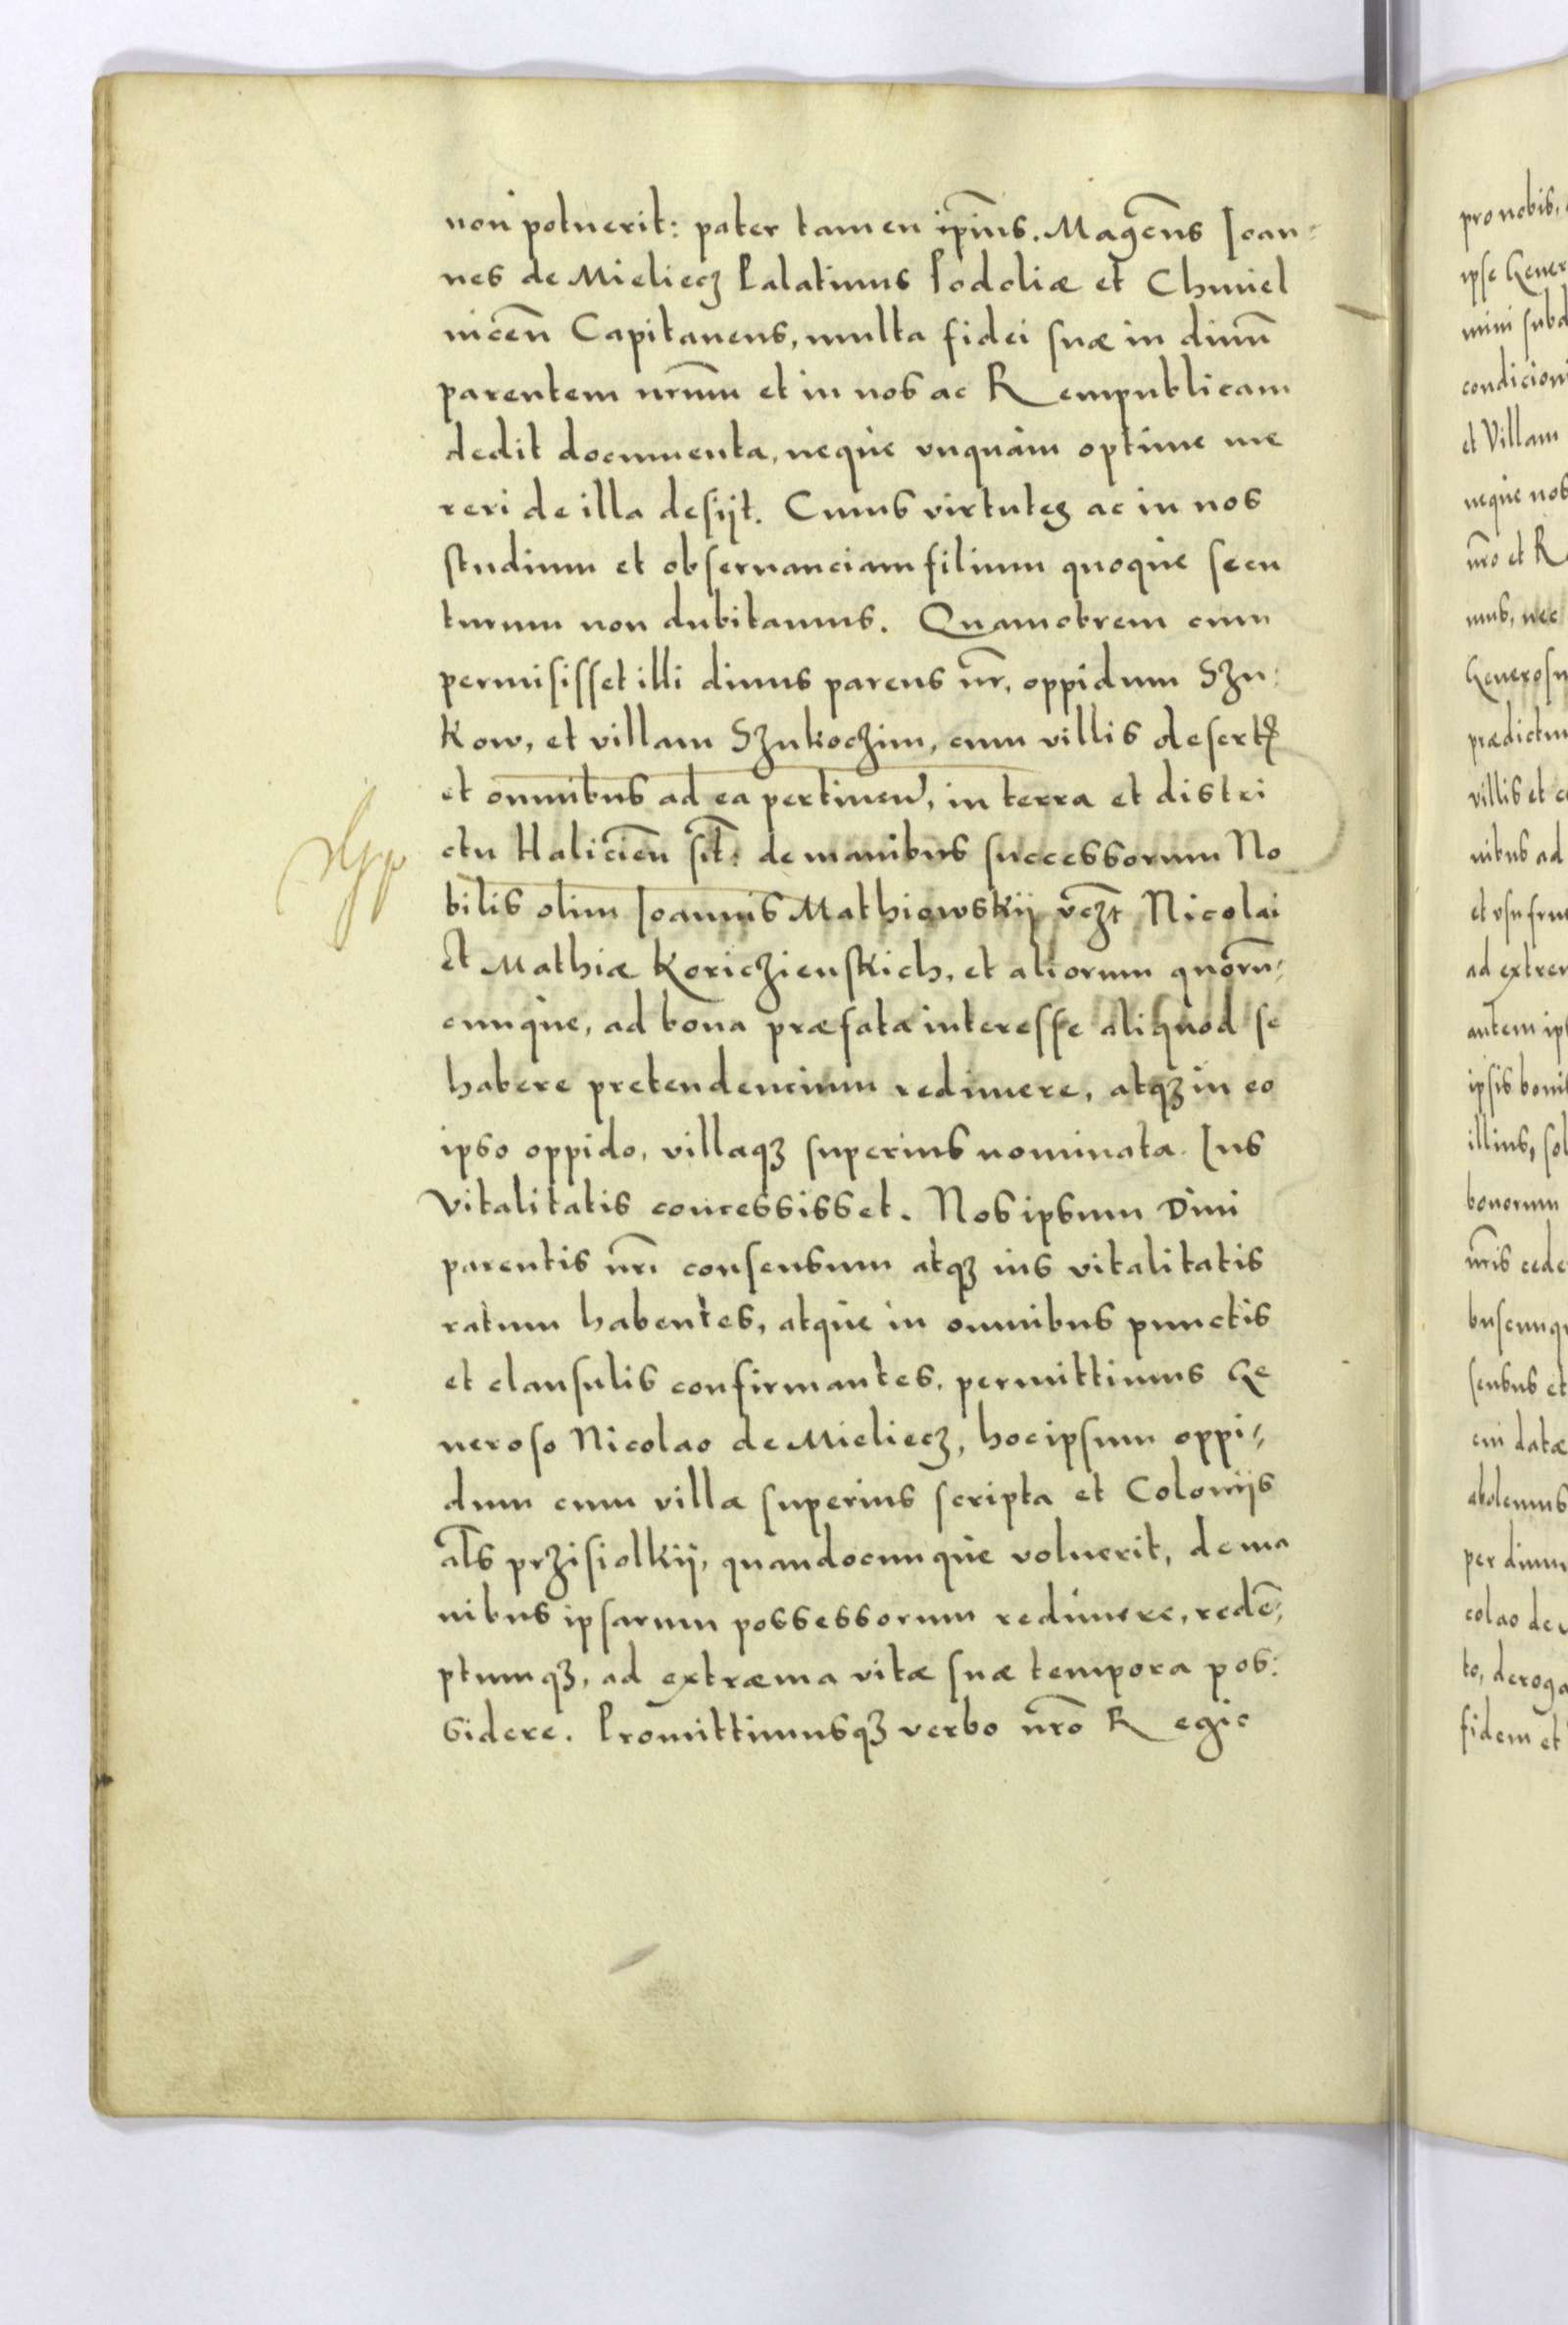 non potuerit: pater tamen ip̃ius. Mag̃cus Ioan=
nes de Mieliecz Palatinus Podoliæ et Chmiel
nicen̄ Capitaneus, multa fidei suæ in diuū
parentem nr̃um et in nos ac Rempublicam
dedit documenta, neque vnquàm optime me
reri de illa desijt. Cuius virtutes ac in nos
studium et obseruanciam filium quoque secu
turum non dubitamus. Quamobrem cum
permisisset illi diuus parens nr̃, oppidum Szu:
kow, et villam Szukoczim, cum villis desertꝭ
et omnibus ad ea pertineñ, in terra et distri
ctu Halicien̄ sit̃: de manibus successorum No
bilis olim Ioannis Mathiowskij vcz̃t Nicolai
et Mathiæ Koriczienskich, et aliorum quorū=
cunque, ad bona præfata interesse aliquod se
habere pretendencium redimere, atqꝫ in eo
ipso oppido, villaqꝫ superius nominata. Ius
Vitalitatis concessisset. Nos ipsum Diui
parentis nr̃i consensum atqꝫ ius vitalitatis
ratum habentes, atque in omnibus punctis
et clausulis confirmantes, permittimus Ge
neroso Nicolao de Mieliecz, hoc ipsum oppi=
dum cum villa superius scripta et Colonijs
al̃s przisiolkij, quandocunque voluerit, de ma
nibus ipsarum possessorum redimere, redē=
ptumqꝫ, ad extræma vitæ suæ tempora pos:
sidere. Promittimusqꝫ verbo nr̃o Regio
pro nobis,
ipse Gener
mini subd
condicion
et Villam
neque nos
nr̃o et R
mus, nec
Generosu
prædictu
villis et c
nibus ad
et vsufru
ad extrem
autem ip
ipsis boni
illius, sol
bonorum
nr̃is cede
buscunq
sensus et
cui datæ
abolemus
per diuu
colao de
to, deroga
fidem et